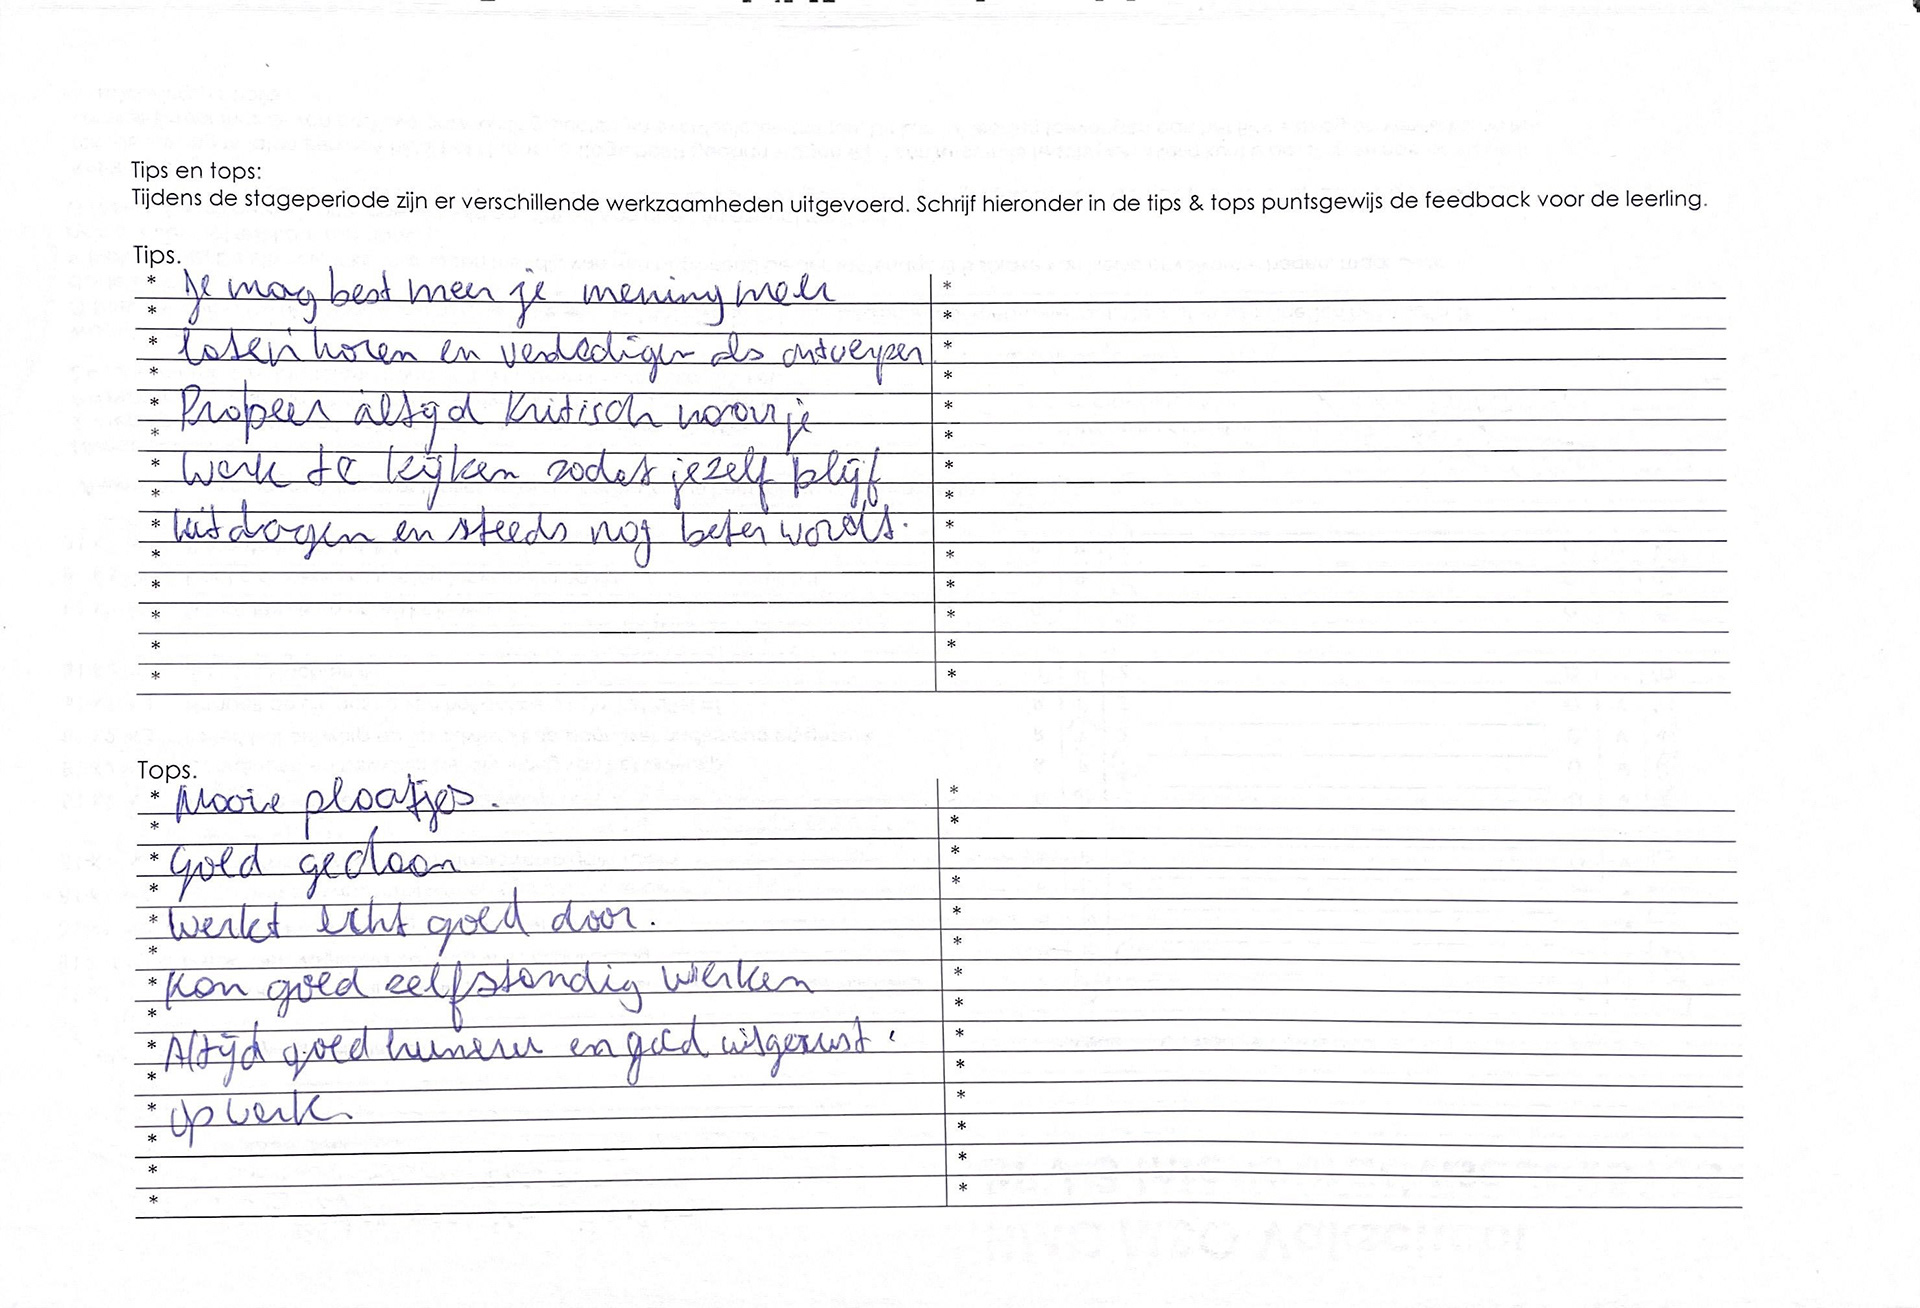 Tips en tops:
Tijdens de stageperiode zijn er verschillende werkzaamheden uitgevoerd. Schrijf hieronder in de tips & tops puntsgewijs de feedback voor de leerling.
Tips.
* Je mag best meer je mening meer
* laten horen en verdedigen als ontwerper
* Probeer altijd kritisch naar je
* werk te kijken zodat jezelf blijf
* uitdagen en steeds nog beter wordt.
Tops.
* Mooie plaatjes.
* Goed gedaan
* Werkt echt goed door.
* Kan goed zelfstandig werken
* Altijd goed humeur en goed uitgerust
* op werk.